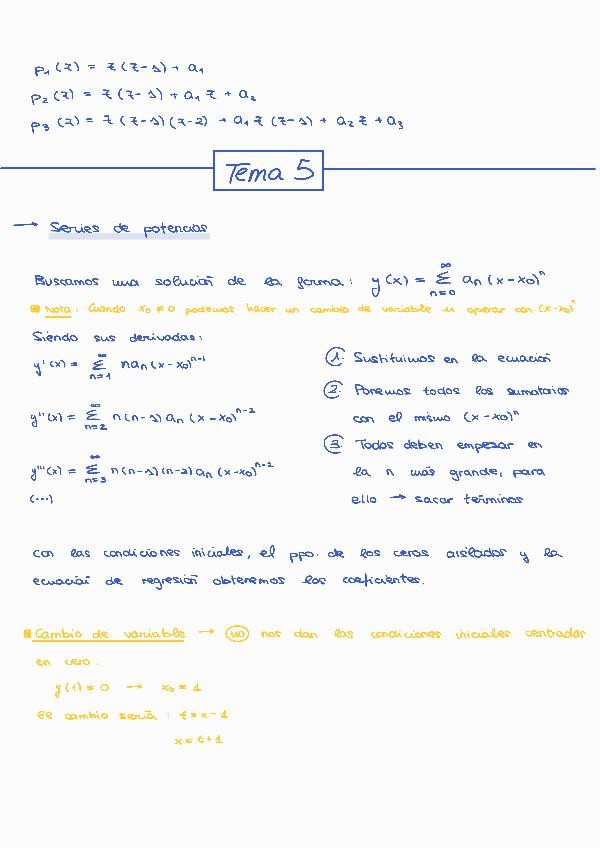 P₁(r) = r(r-1) + a₁
P₂(r) = r(r-1) + a₁r + a₂
P₃(r) = r(r-1)(r-2) + a₁r(r-1) + a₂r + a₃
Tema 5
→ Series de potencias
Buscamos una solución de la forma: y(x) = Σ_{n=0}^{∞} aₙ(x-x₀)ⁿ
Nota: Cuando x₀ ≠ 0 podemos hacer un cambio de variable u operar con (x-x₀)ⁿ
Siendo sus derivadas:
y'(x) = Σ_{n=1}^{∞} naₙ(x-x₀)ⁿ⁻¹
y''(x) = Σ_{n=2}^{∞} n(n-1)aₙ(x-x₀)ⁿ⁻²
y'''(x) = Σ_{n=3}^{∞} n(n-1)(n-2)aₙ(x-x₀)ⁿ⁻²
(...)
1. Sustituimos en la ecuación
2. Ponemos todos los sumatorios
con el mismo (x-x₀)ⁿ
3. Todos deben empezar en
la n más grande, para
ello → sacar términos
Con las condiciones iniciales, el ppo. de los ceros aislados y la
ecuación de regresión obtenemos los coeficientes.
Cambio de variable → no nos dan las condiciones iniciales centradas
en cero.
y(1) = 0 → x₀ = 1
El cambio sería: t = x-1
x = t+1